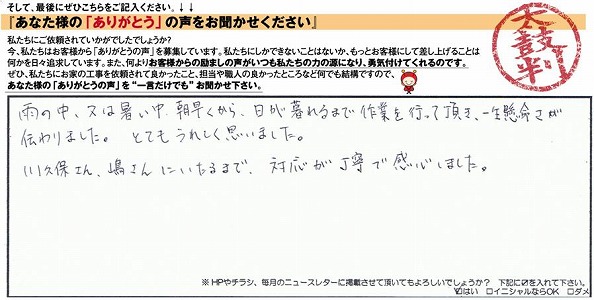 そして、最後にぜひこちらをご記入ください。↓↓
『あなた様の「ありがとう」の声をお聞かせください』
私たちにご依頼されていかがでしたでしょうか?
今、私たちはお客様から「ありがとうの声」を募集しています。私たちにしかできないことはないか、もっとお客様にして差し上げることは
何かを日々追求しています。また、何よりお客様からの励ましの声がいつも私たちの力の源になり、勇気付けてくれるのです。
ぜひ、私たちにお家の工事を依頼されて良かったこと、担当や職人の良かったところなど何でも結構ですので、
あなた様の「ありがとうの声」を“一言だけでも”お聞かせ下さい。
太鼓判
雨の中、又は暑い中、朝早くから、日が暮れるまで作業を行って頂き、一生懸命さが
伝わりました。とてもうれしく思いました。
川久保さん、嶋さんにいたるまで、対応が丁寧で感心しました。
※HPやチラシ、毎月のニュースレターに掲載させて頂いてもよろしいでしょうか? 下記に☑を入れて下さい。
☑はい □イニシャルならOK □ダメ